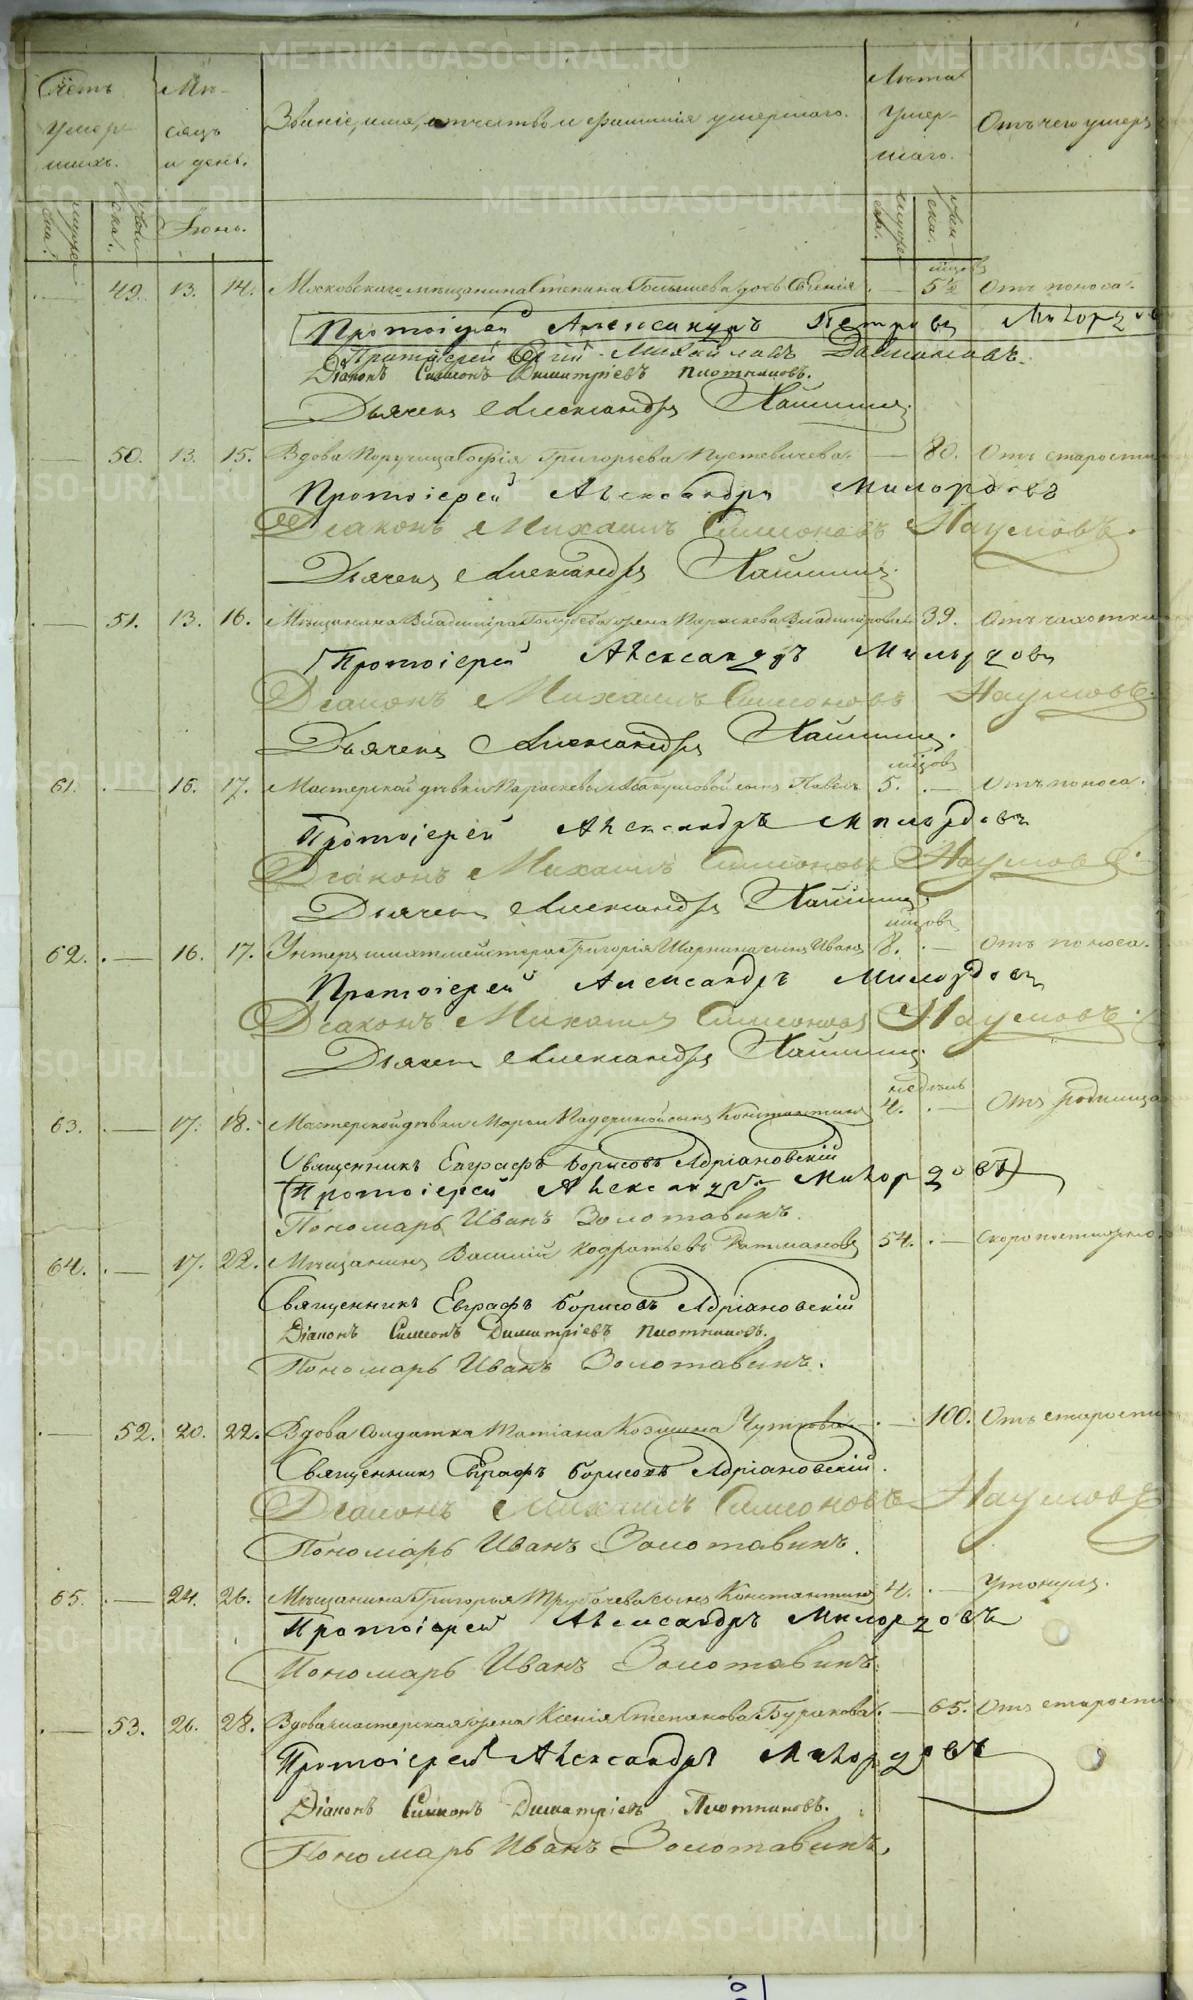 METRIKI.GASO-URAL.RU
Счетъ умершихъ.
Мѣсяцъ и день.
Званіе, имя, отчество и фамилія умершаго.
Лѣта умершаго.
Отъ чего умеръ
мужеска.
женска.
Іюнь.
мужеска.
женска.
49. 13. 14. Московскаго мѣщанина Степана дочь Евгенія мцовъ 5½ Отъ поноса.
Протоіерей Александръ Петровъ Милордовъ
Протоіерей Сергій Михайловъ
Діаконъ Симеонъ Димитріевъ Плотниковъ.
Дьячекъ Александръ
50. 13. 15. Вдова Поручица Софія Григорьева Пустевичева. 80. Отъ старости
Протоіерей Александръ Милордовъ
Діаконъ Михаилъ Симоновъ Наумовъ.
Дьячекъ Александръ
51. 13. 16. Мѣщанина Владиміра Голубева жена Параскева Владимірова 39. Отъ чахотки
Протоіерей Александръ Милордовъ
Діаконъ Михаилъ Симоновъ Наумовъ.
Дьячекъ Александръ
61. 16. 17. Мастерской дѣвки Параскевы Абакумовой сынъ Павелъ мцовъ 5. Отъ поноса.
Протоіерей Александръ Милордовъ
Діаконъ Михаилъ Симоновъ Наумовъ.
Дьячекъ Александръ
62. 16. 17. Унтеръ шихтмейстера Григорія сынъ Иванъ мцовъ 8. Отъ поноса.
Протоіерей Александръ Милордовъ
Діаконъ Михаилъ Симоновъ Наумовъ.
Дьячекъ Александръ
63. 17. 18. Мастерской дѣвки Марьи сынъ Константинъ недѣль 4. Отъ родимца
Священникъ Евграфъ Борисовъ Адріановскій
Протоіерей Александръ Милордовъ
Пономарь Иванъ Золотавинъ.
64. 17. 22. Мѣщанинъ Василій Кодратьевъ Ратмановъ 54. Скоропостижно.
Священникъ Евграфъ Борисовъ Адріановскій
Діаконъ Симеонъ Димитріевъ Плотниковъ.
Пономарь Иванъ Золотавинъ.
52. 20. 22. Вдова Солдатка Татіана Козмина 100. Отъ старости
Священникъ Евграфъ Борисовъ Адріановскій.
Діаконъ Михаилъ Симоновъ Наумовъ
Пономарь Иванъ Золотавинъ.
65. 24. 26. Мѣщанина Григорья Трубачева сынъ Константинъ 4. Утонулъ.
Протоіерей Александръ Милордовъ
Пономарь Иванъ Золотавинъ.
53. 26. 28. Вдова мастерская жена Ксенія Степанова Буракова. 65. Отъ старости
Протоіерей Александръ Милордовъ
Діаконъ Симеонъ Димитріевъ Плотниковъ.
Пономарь Иванъ Золотавинъ.